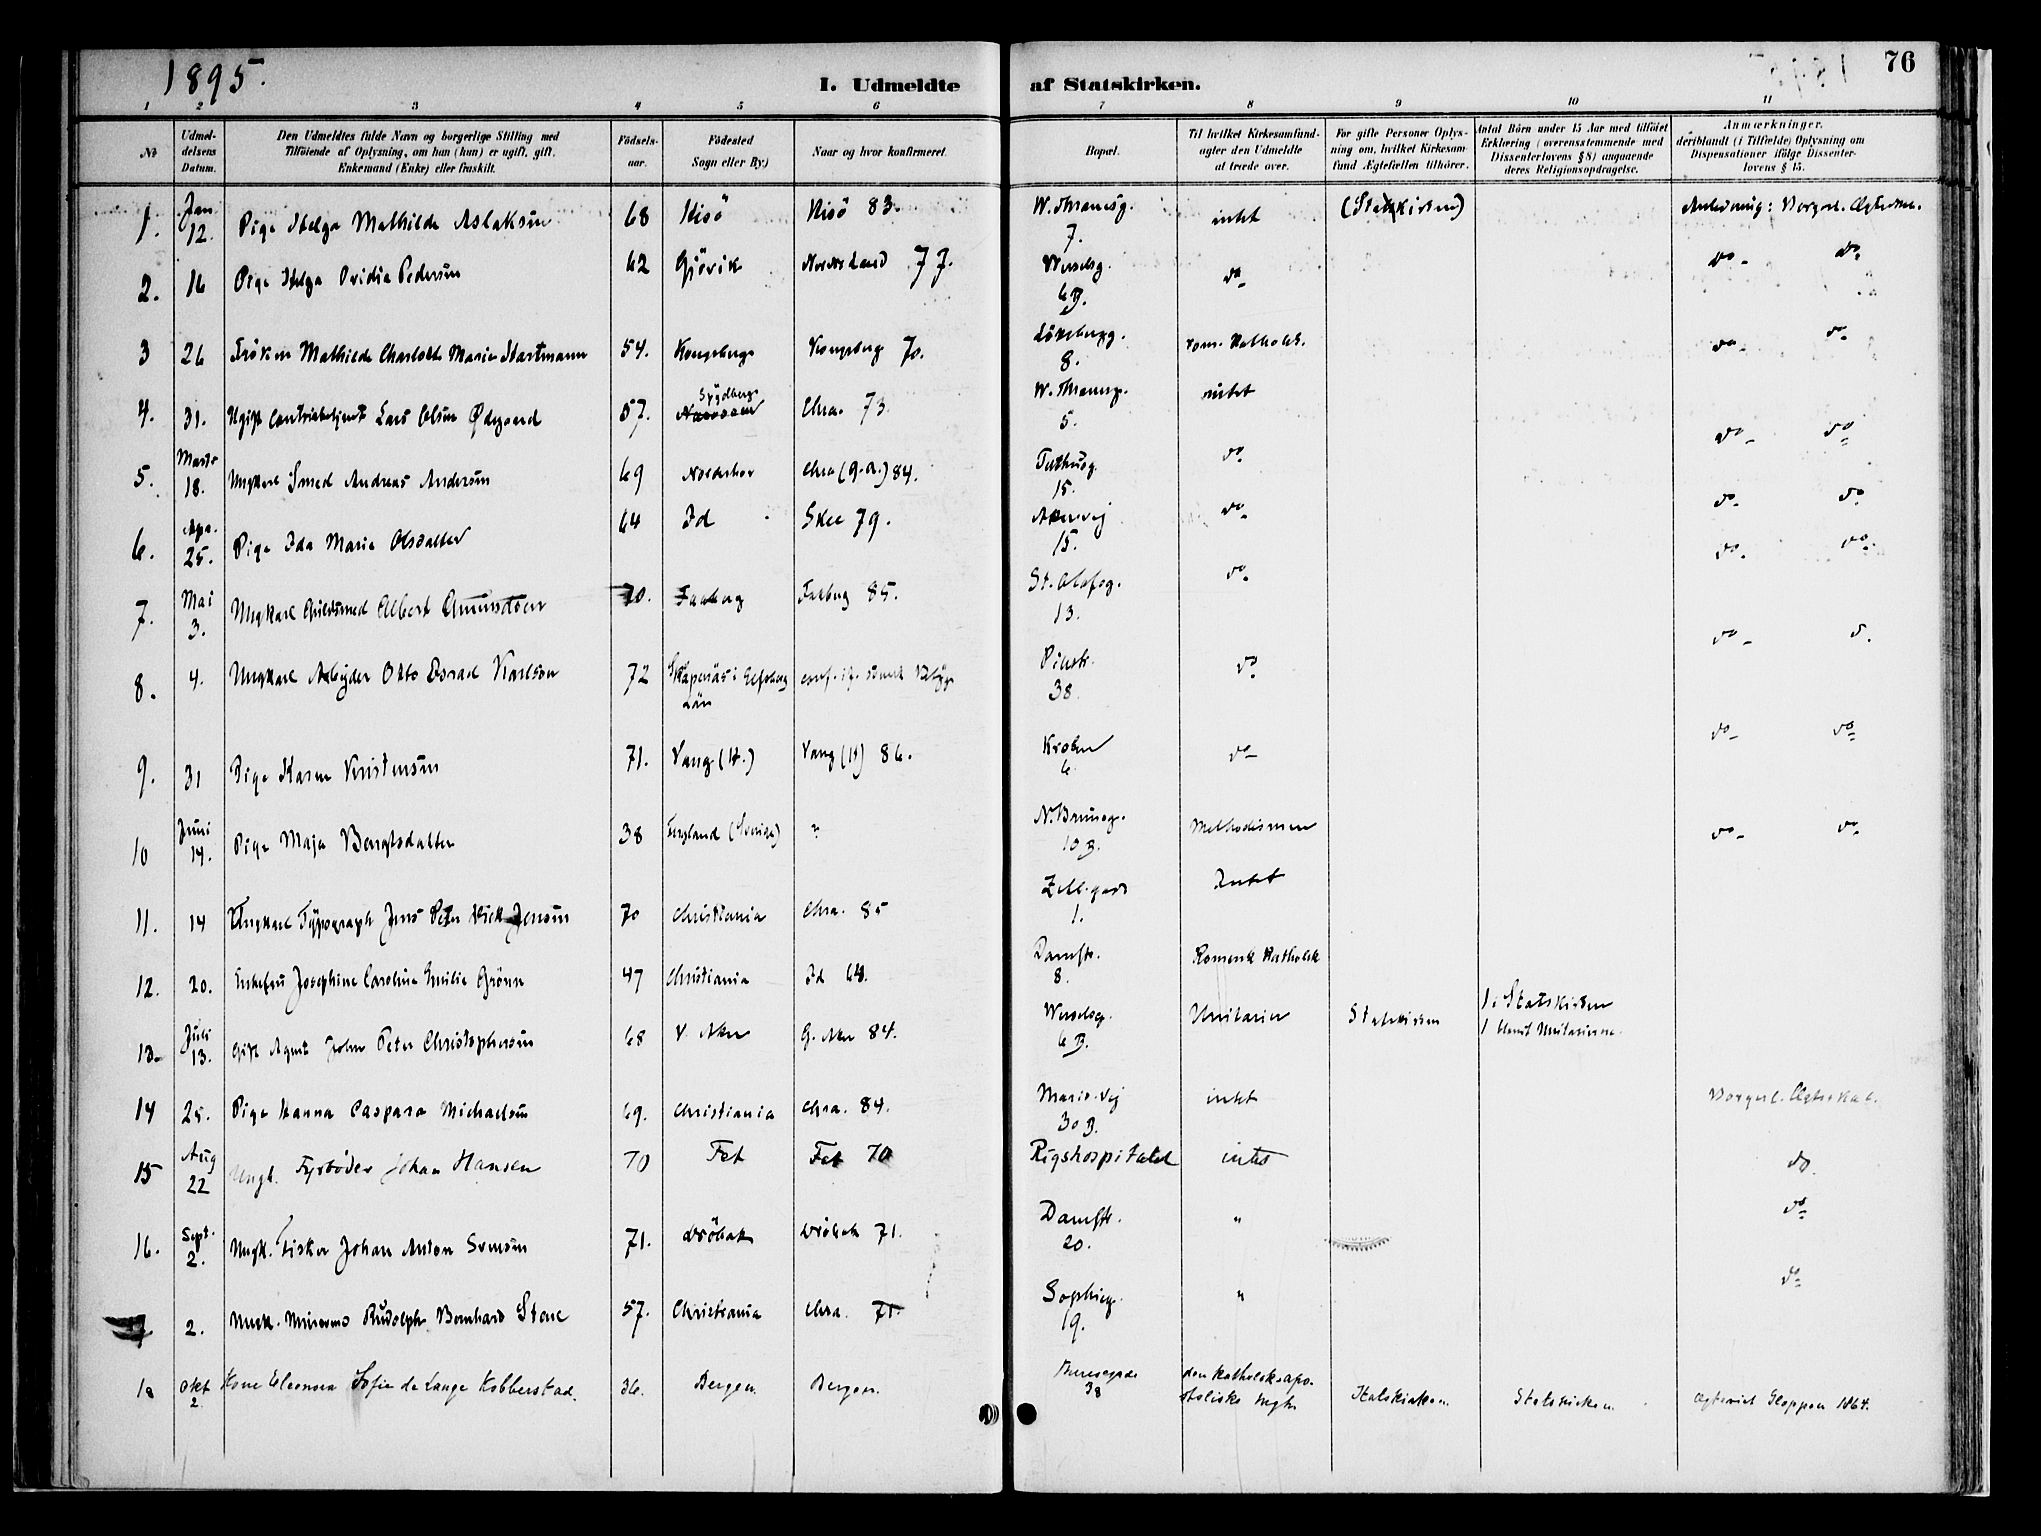 1895.
I. Udmeldte af Statskirken.
76
1 2 3 4 5 6 7 8 9 10 11
No
Udmeldelsens Datum.
Den Udmeldtes fulde Navn og borgerlige Stilling med Tilføiende af Oplysning, om han (hun) er ugift, gift, Enkemand (Enke) eller fraskilt.
Fødselsaar.
Fødested Sogn eller By.)
Naar og hvor konfirmeret.
Bopæl.
Til hvilket Kirkesamfund agter den Udmeldte at træde over.
For gifte Personer Oplysning om, hvilket Kirkesamfund Ægtefællen tilhører.
Antal Börn under 15 Aar med tilföiet Erklæring (overensstemmende med Dissenterlovens § 8) angaaende deres Religionsopdragelse.
Anmærkninger, deriblandt (i Tilfælde) Oplysning om Dispensationer ifölge Dissenterlovens § 15.
1. Jan. 12. Pige Helga Mathilde Aslaksen 68 Hisö Hisö 83. W. Thranesg. 7. intet (Statskirken) Anledning: Borgerl. Ægtesk.
2. 16 Pige Helga Ovidia Pedersen 62 Gjövik Nordre Land 77. Wesselsg. 6 B. do do do
3 26 Fröken Mathilde Charlotte Marie Hartmann 54. Kongsberg Kongsberg 70. Lökkebergg. 8. rom. Katholsk. do do
4. 31. Ugift Lars Olsen Ödegaard 57. Sygdberg Chra. 73 W. Thranesg. 5. intet
5. Marts 18. Ungkarl Smed Andreas Andersen 69 Nordrehov Chra (G.A.) 84. Tufthusg. 15. do do do
6. Apr. 25. Pige Ida Marie Olsdatter 64 Id Skee 79. Akersvej 15. do do do
7. Mai 3. Ungkarl Guldsmed Albert Amundsen 70. Faaberg Faaberg 85. St. Olafsg. 13. do do do
8. 4. Ungkarl Arbejder Otto Karlson 72 i Elfsborg Län Pilestr. 38. do do d.
9. 31 Pige Karen Kristensen 71. Vang (H.) Vang (H) 86. Kroken 6 do do do
10 Juni 14. Pige Maja Bengtsdatter 38 (Sverige) " N. Brunog. 10 B. Methodismen do do
11. 14 Ungkarl Typograph Jens Peter Jensen 70 Christiania Chra. 85 1. Intet
12. 20. Enkefru Josephine Caroline Emilie Grönn 47 Christiania Id 64. Damstr. 8. Romersk Katholsk
13. Juli 13. Gift Agent John Peter Christophersen 68 V. Aker G. Aker 84. Wesselsg. 6 B. Unitarier Statskirken 1 i Statskirken 1 Unitarierne.
14 25. Pige Hanna Caspara Michaelsen 69. Christiania Chra. 84. Maridvej 30 B. intet Borgerl. Ægteskab.
15 Aug 22 Ungk. Fyrböder Johan Hansen 70 Fet Fet 70 Rigshospitalet intet do.
16. Sept. 2. Ungk. Fisker Johan Anton Svensen 71. Dröbak Dröbak 71. Damstr. 20. " do
2. Ungk. Rudolph Bernhard Stene 57. Christiania Chra. 71. Sophieg. 19. " do
18 Okt 2 Kone Eleonora Sofie de Lange Kobberstad. 36. Bergen. Bergen. Theresegade 38 den katholskapostoliske Mgh. Statskirken. Statskirken. Ægteviet Gloppen 1864.